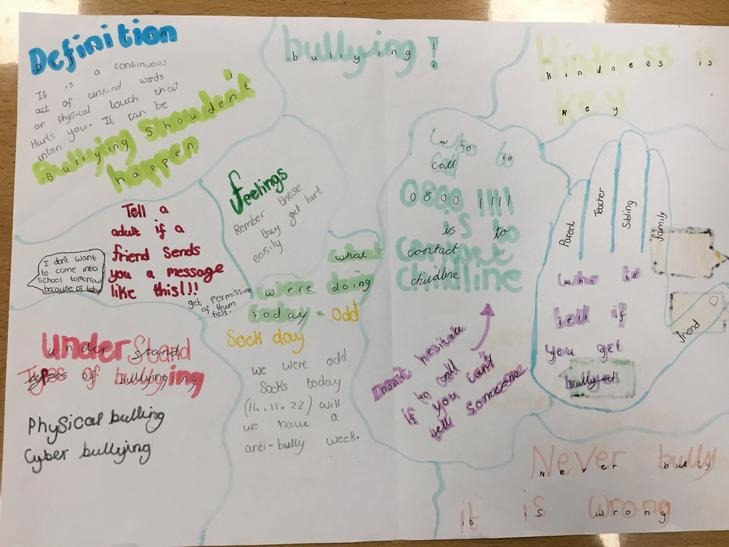 Definition
It is a continuous
act of unkind words
or physical touch that
Hurts you. It can be
inten
Bullying shouden't
happen
bullying!
Kindness is
key
Feelings
Rember these
they get hurt
easily
Tell a
adult if a
friend sends
you a message
like this!!!
I don't want
to come into
school tomorrow
because of
get permission
of them
first.
Understand
Types of bullying
Physical bulling
Cyber bullying
what
were doing
today - odd
Sock day
we were odd
Socks today
(14.11.22) will
we have a
anti-bully week.
who to
call
0800 1111
is to
contact
chidline
Don't hesitate
to call
if you can't
tell someone
Parent
Teacher
Sibling
family
friend
who to
tell if
you get
bullyed
Never bully
it is wrong